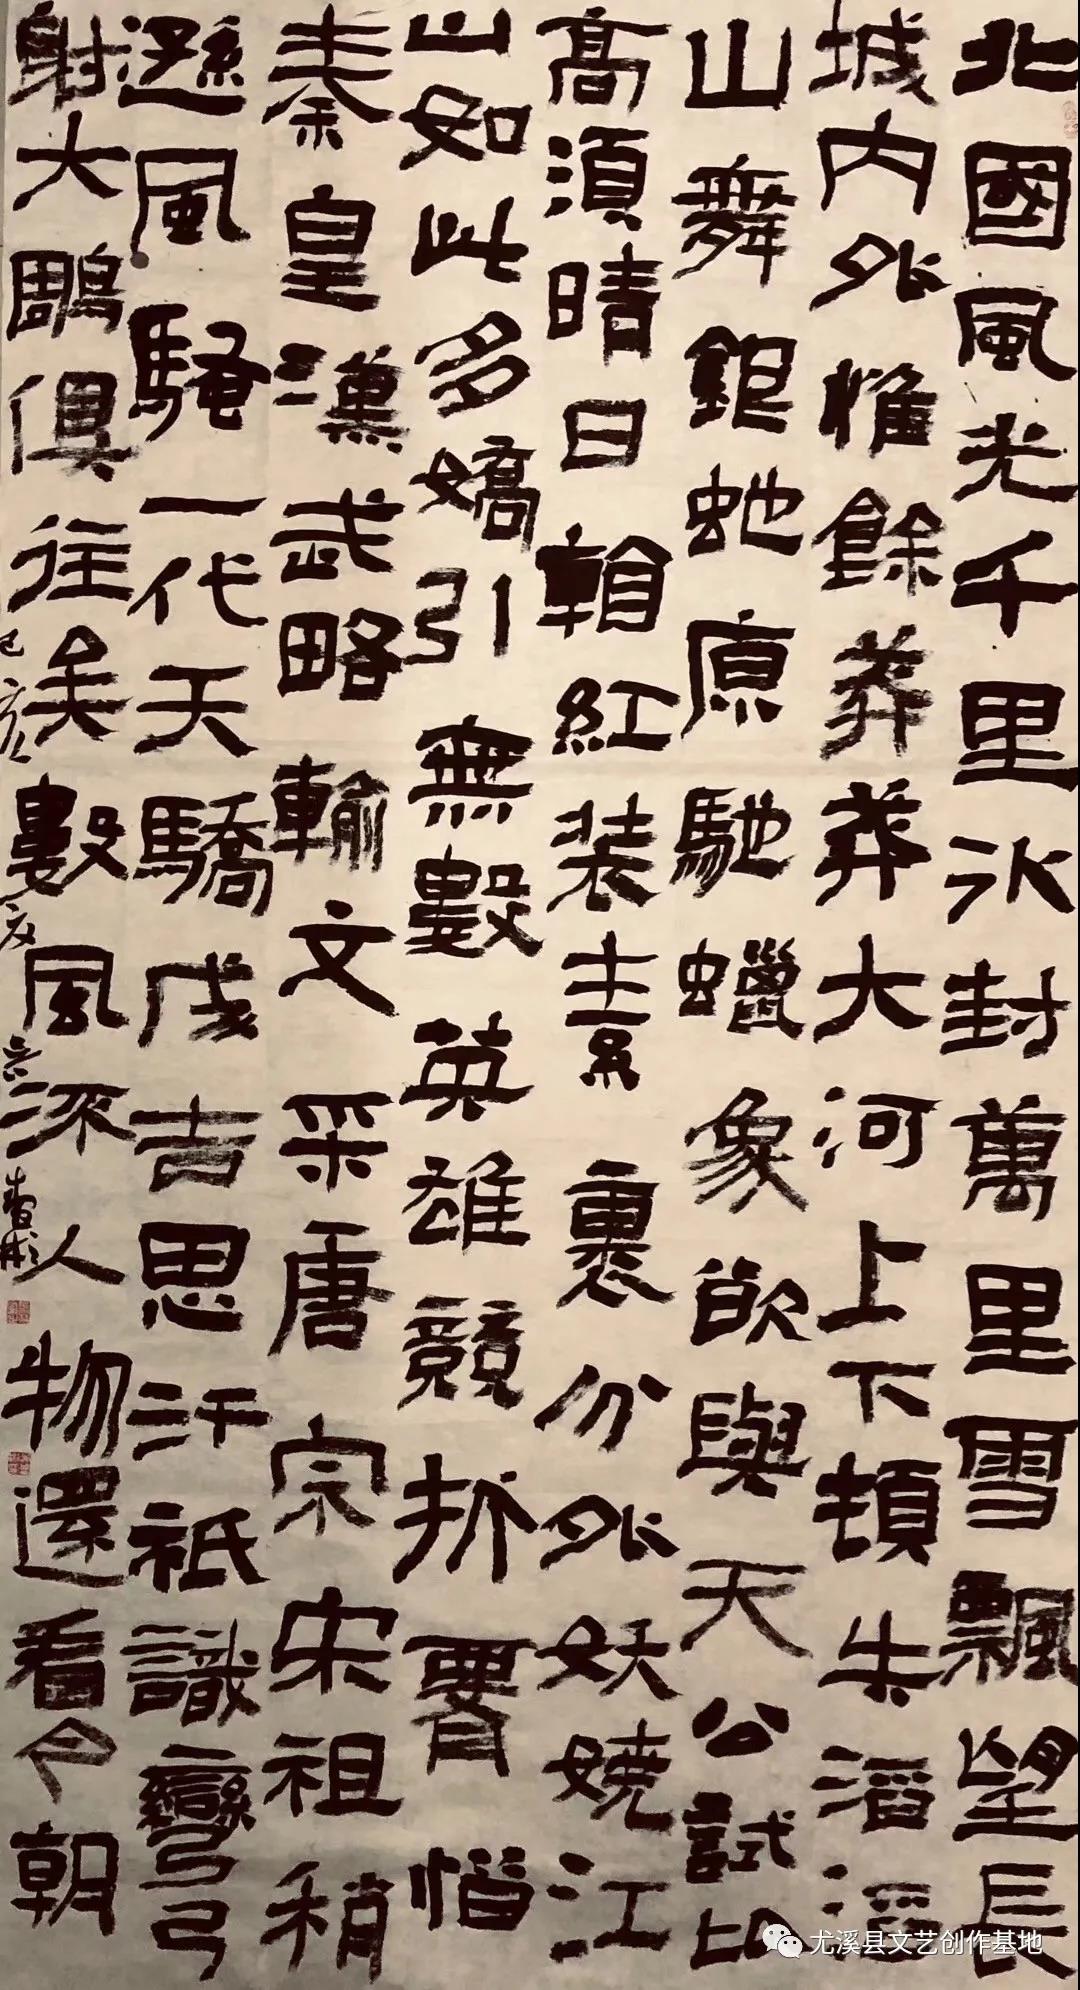 北國風光千里冰封萬里雪飄望長
城内外惟餘莽莽大河上下頓失滔滔
山舞銀蛇原馳蠟象欲與天公試比
高須晴日看紅装素裹分外妖嬈江
山如此多嬌引無數英雄競折腰惜
秦皇漢武略輸文采唐宗宋祖稍
遜風騷一代天驕成吉思汗祇識彎弓
射大鵰俱往矣數風流人物還看今朝
己亥
尤溪县文艺创作基地